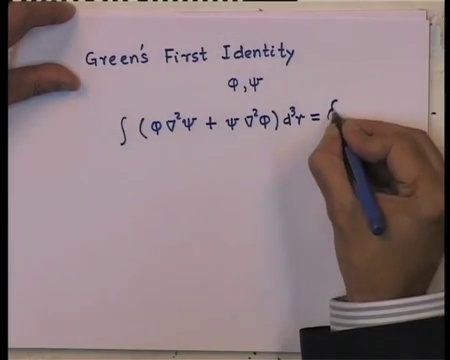 Green's First Identity
φ, ψ
∫ (φ∇²ψ + ψ∇²φ) d³r = ∫